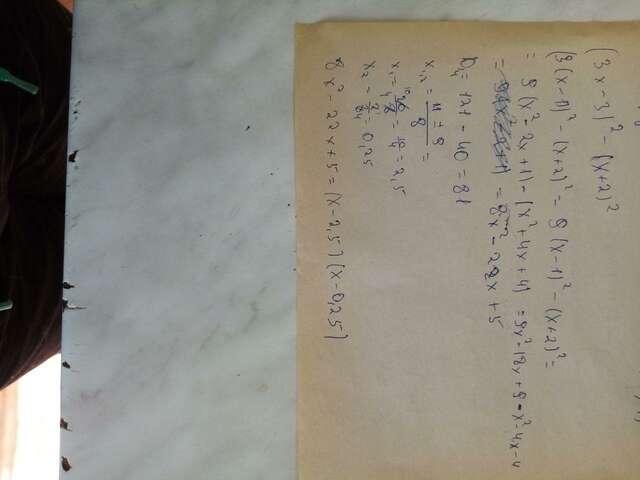 (3x-3)² - (x+2)²
(3(x-1))² - (x+2)² = 9(x-1)² - (x+2)² =
= 9(x²-2x+1) - (x²+4x+4) = 9x²-18x+9-x²-4x-4
= 8x² - 22x + 5
D/4 = 121 - 40 = 81
x₁,₂ = (11 ± 9)/8 =
x₁ = 20/8 = 10/4 = 2,5
x₂ = 2/8 = 0,25
8x² - 22x + 5 = (x-2,5)(x-0,25)